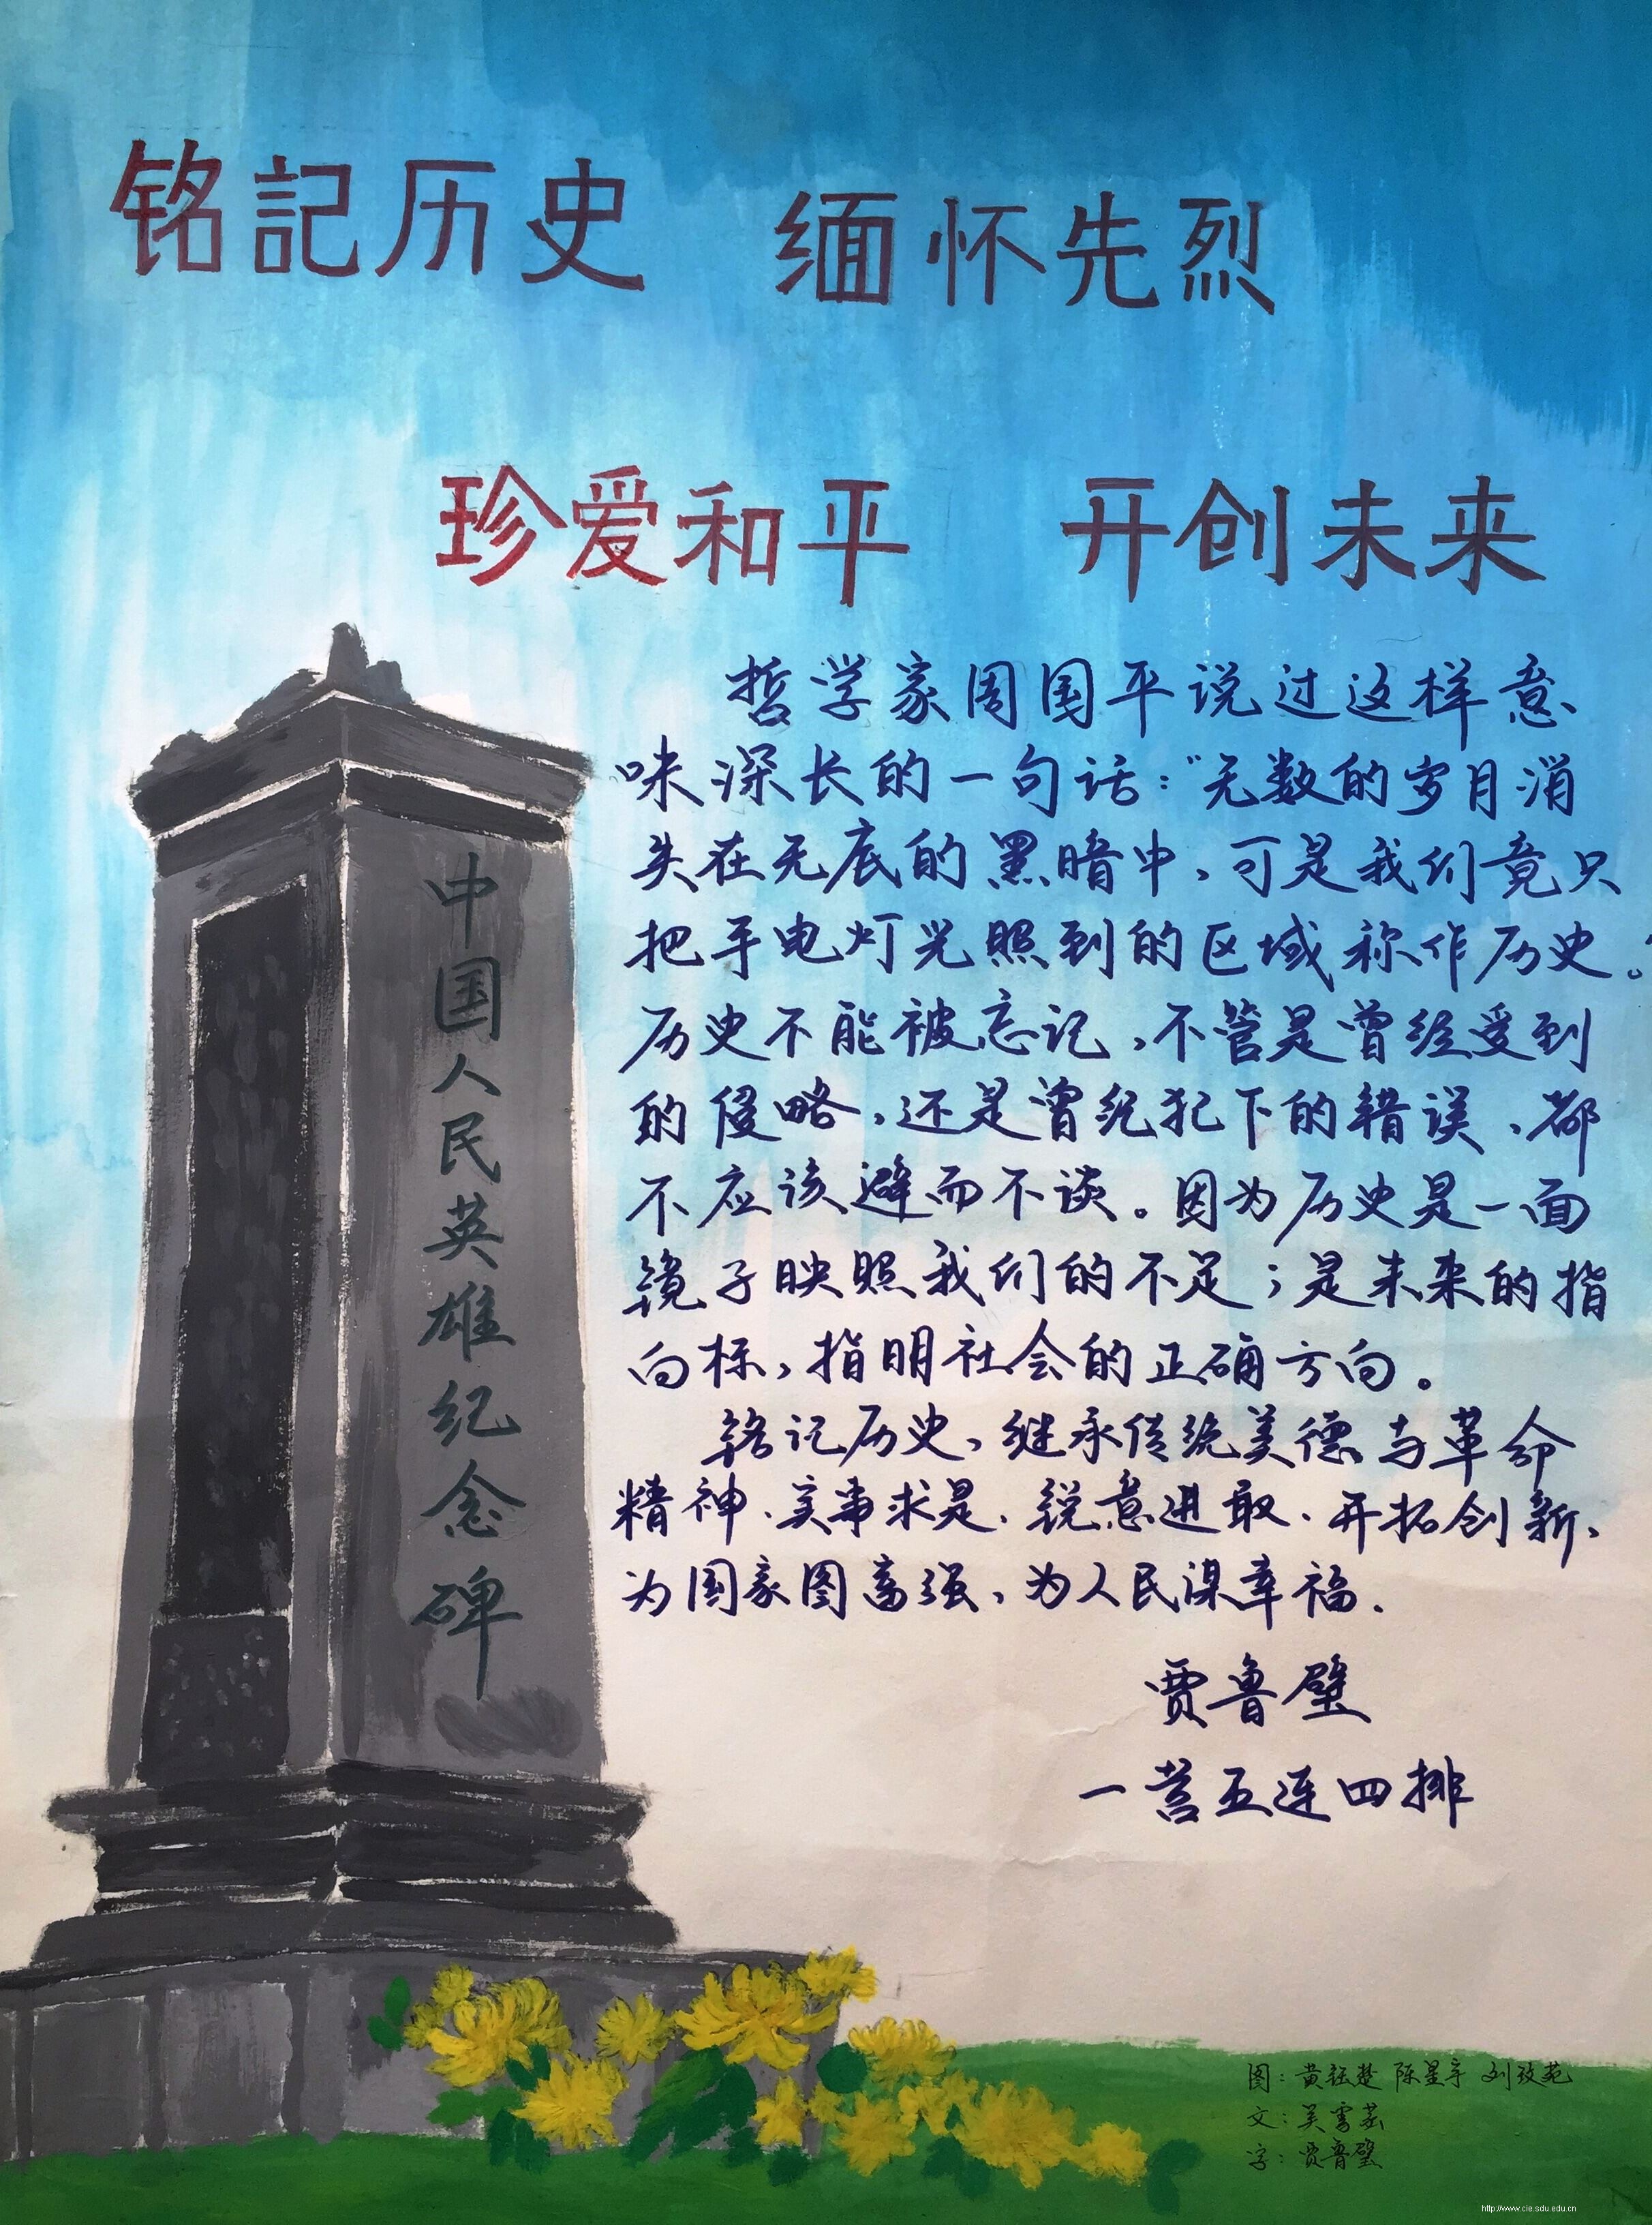 铭記历史 缅怀先烈
珍爱和平 开创未来
哲学家周国平说过这样意
味深长的一句话:“无数的岁月消
失在无底的黑暗中,可是我们竟只
把手电灯光照到的区域称作历史。”
历史不能被忘记,不管是曾经受到
的侵略,还是曾经犯下的错误,都
不应该避而不谈。因为历史是一面
镜子映照我们的不足;是未来的指
向标,指明社会的正确方向。
铭记历史,继承传统美德与革命
精神、实事求是、锐意进取、开拓创新、
为国家图富强,为人民谋幸福.
贾鲁璧
一营五连四排
中国人民英雄纪念碑
图: 陈星宇
文:
字:贾鲁璧
http://www.cie.sdu.edu.cn